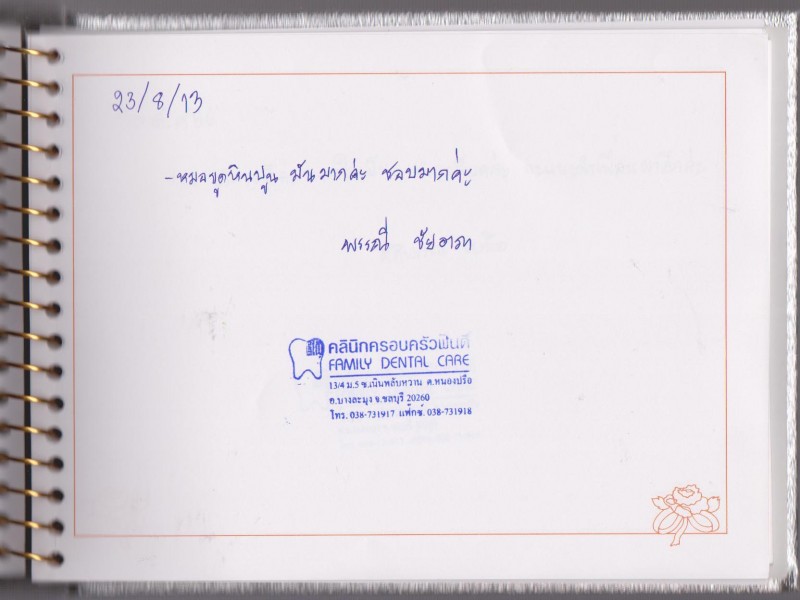 23/8/13
-หมอขูดหินปูน มันมากค่ะ ชอบมากค่ะ
พรรณี ชัยอาภา
คลินิกครอบครัวฟันดี
FAMILY DENTAL CARE
13/4 ม.5 ซ.เนินพลับหวาน ต.หนองปรือ
อ.บางละมุง จ.ชลบุรี 20260
โทร. 038-731917 แฟ็กซ์. 038-731918